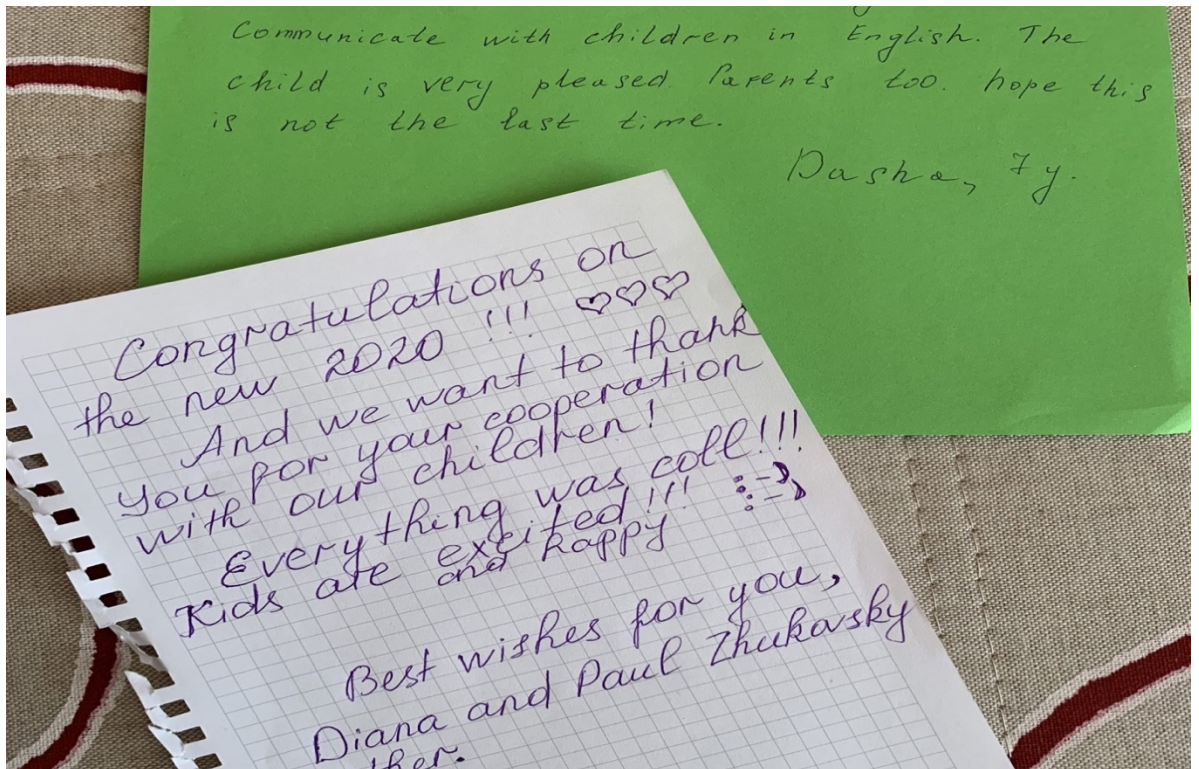 Communicate with children in English. The
child is very pleased. Parents too. hope this
is not the last time.
Dasha, 7y.
Congratulations on
the new 2020 !!! ♡♡♡
And we want to thank
you for your cooperation
with our children!
Everything was coll!!! :-)
Kids are excited!!! :-)
and happy
Best wishes for you,
Diana and Paul Zhukovsky